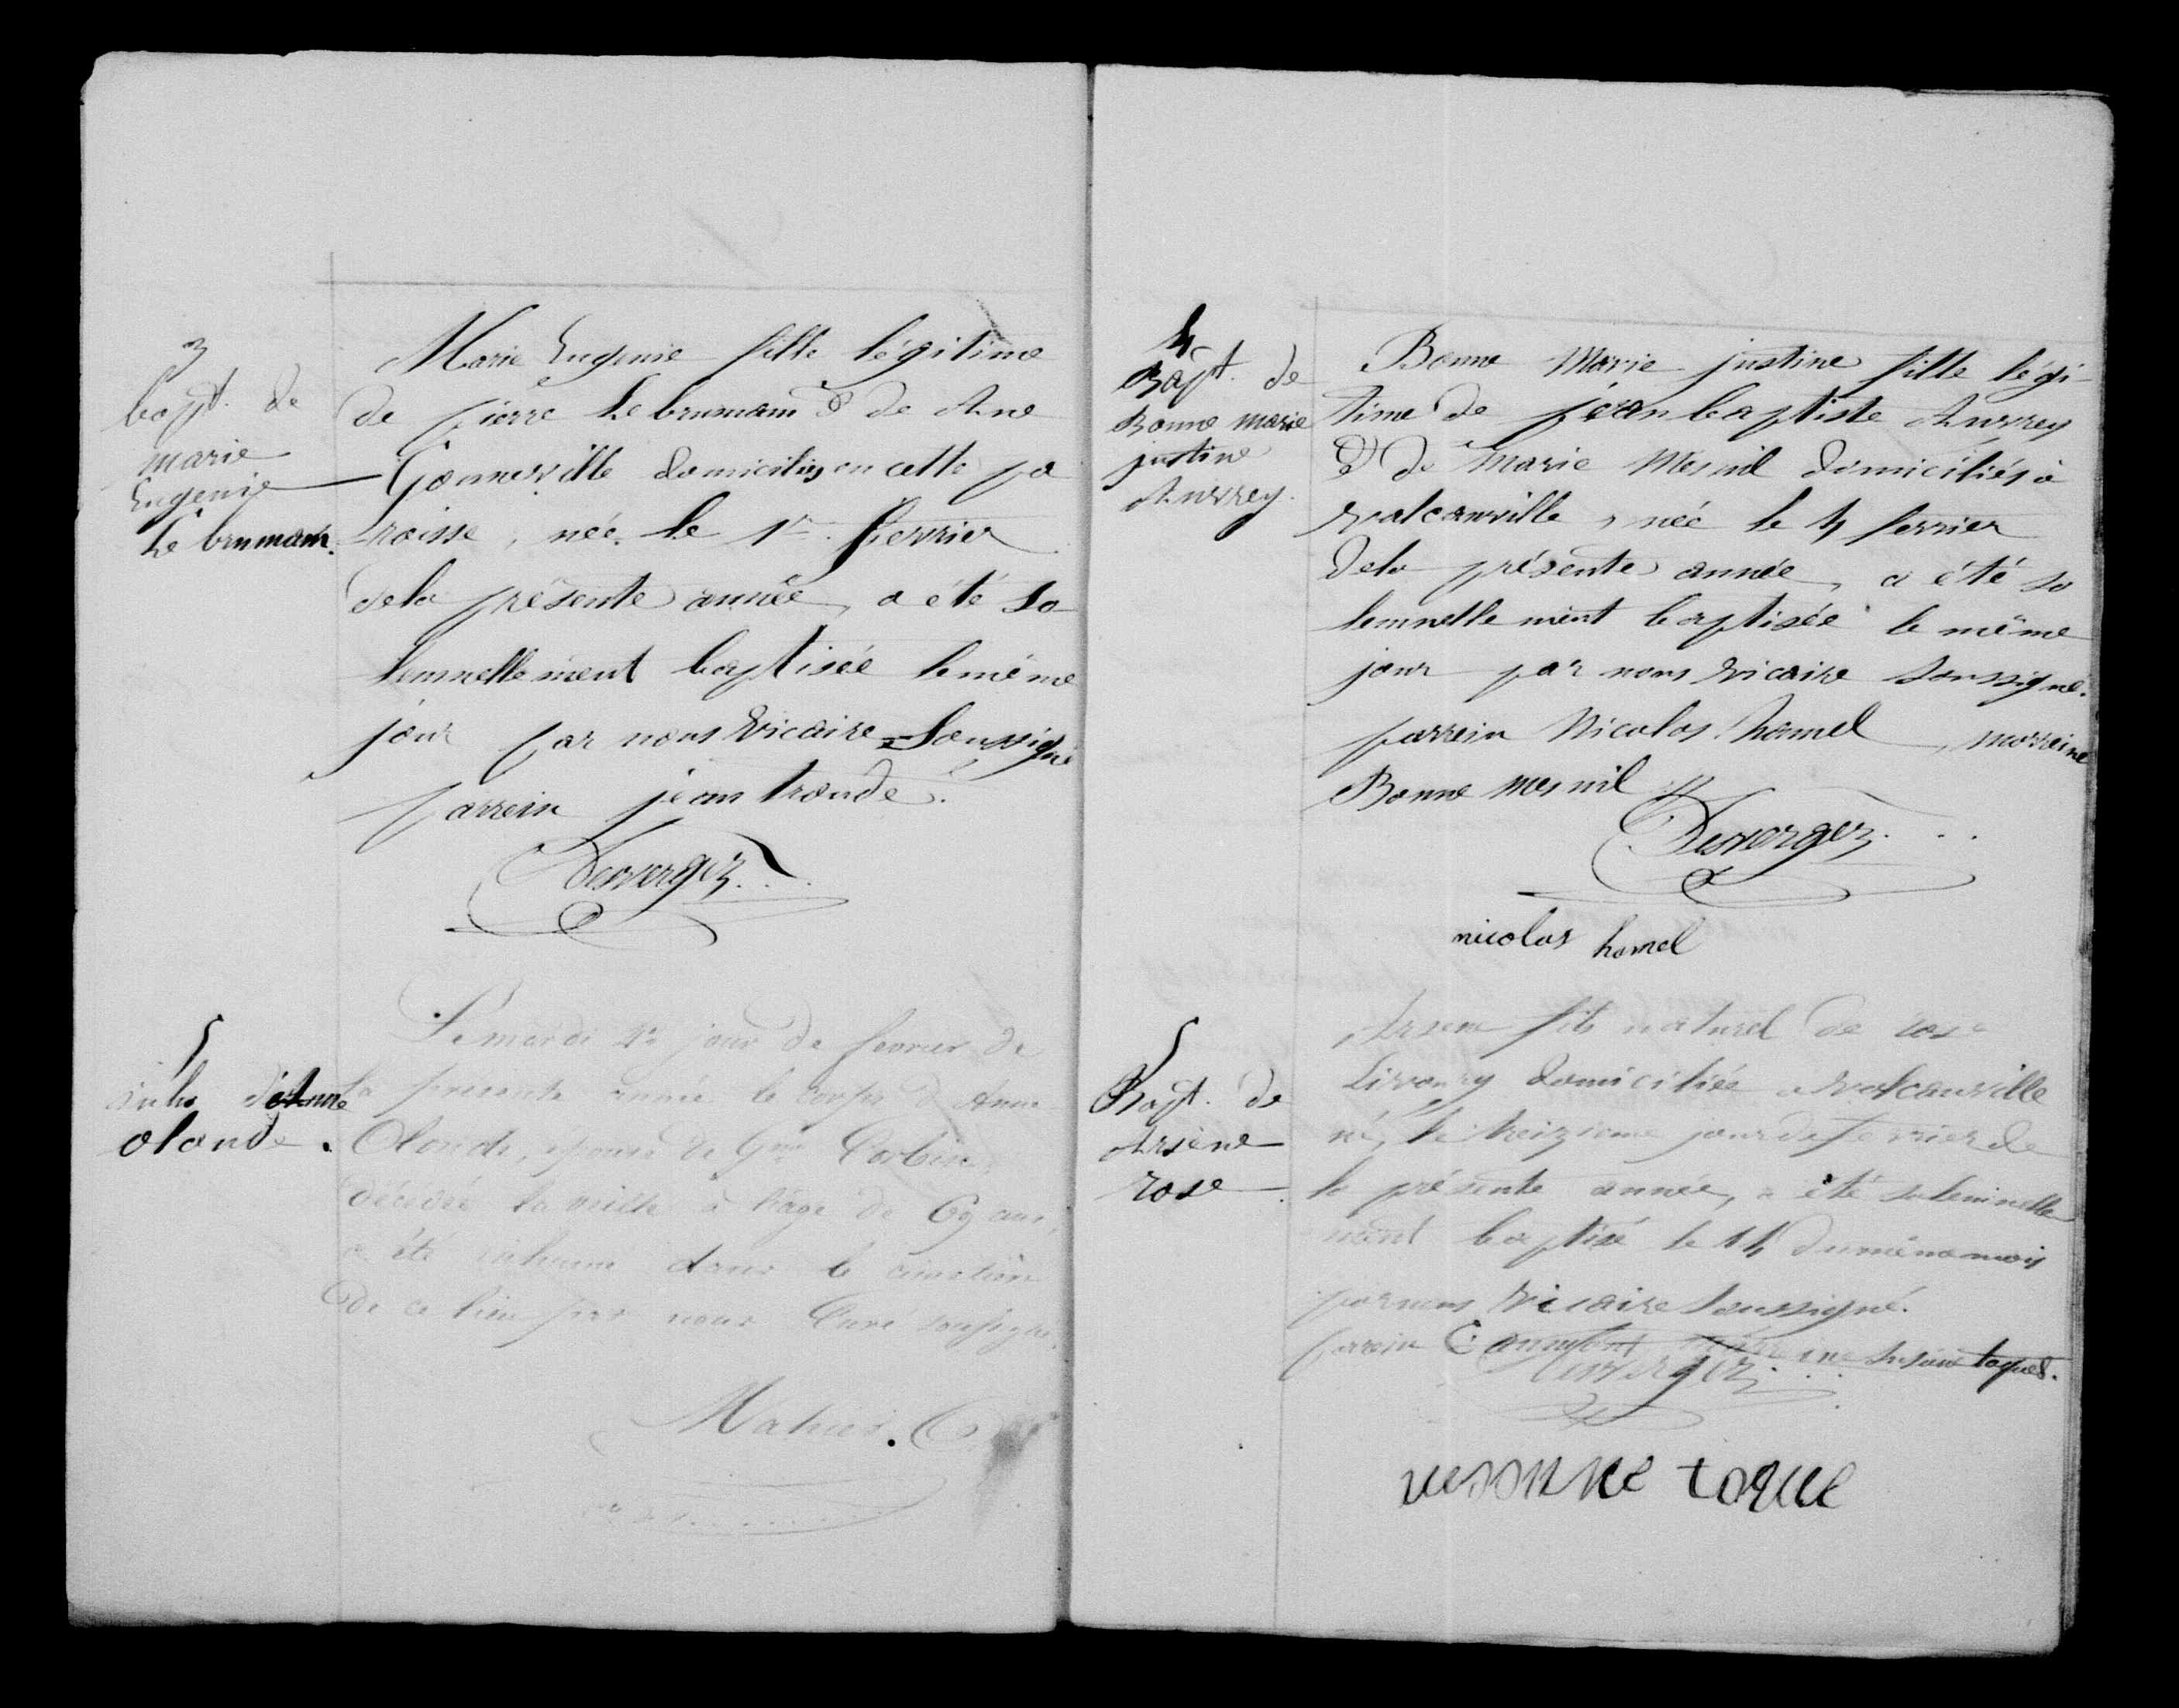 3
bapt. de
marie
Eugenie
Le brumam.
Marie Eugenie fille légitime
de pierre Le brumam & de Ane
Gonneville domiciliés en cette pa
roisse, née le 1er fevrier
dela présente année, a été so
lemnellement baptisée le même
jour par nous vicaire Soussigné
parrein jean troude.
Desverger
5
inhu d'Anne
olonde.
Le mardi jour de fevrier de
la presente année le corps d'Anne
Olonde, epouse de Gme Corbin
décédée la veille à l'age de 69 ans,
a été inhumé dans le cimetière
de ce lieu par nous Curé soussigné
Mahieu.
4
Bapt. de
Bonne marie
justine
Avrrey.
Bonne Marie justine fille légi-
time de jean baptiste Avrrey
& de Marie Mesnil domiciliés à
valcanville, née le 4 fevrier
dela présente année, a été so
lemnelle ment baptisée le même
jour par nous vicaire soussigné.
parrein Nicolas hamel, marreine
Bonne mesnil
Desverger
nicolas hamel
5
Bapt. de
Arsène
rose
Arsene fils naturel de rose
domiciliée a valcanville
né, le treizieme jour de fevrier de
la présente année, a été solemnelle
ment baptisé le 14 du même mois
par nous vicaire soussigné.
parrein toqué.
Desverger
toque